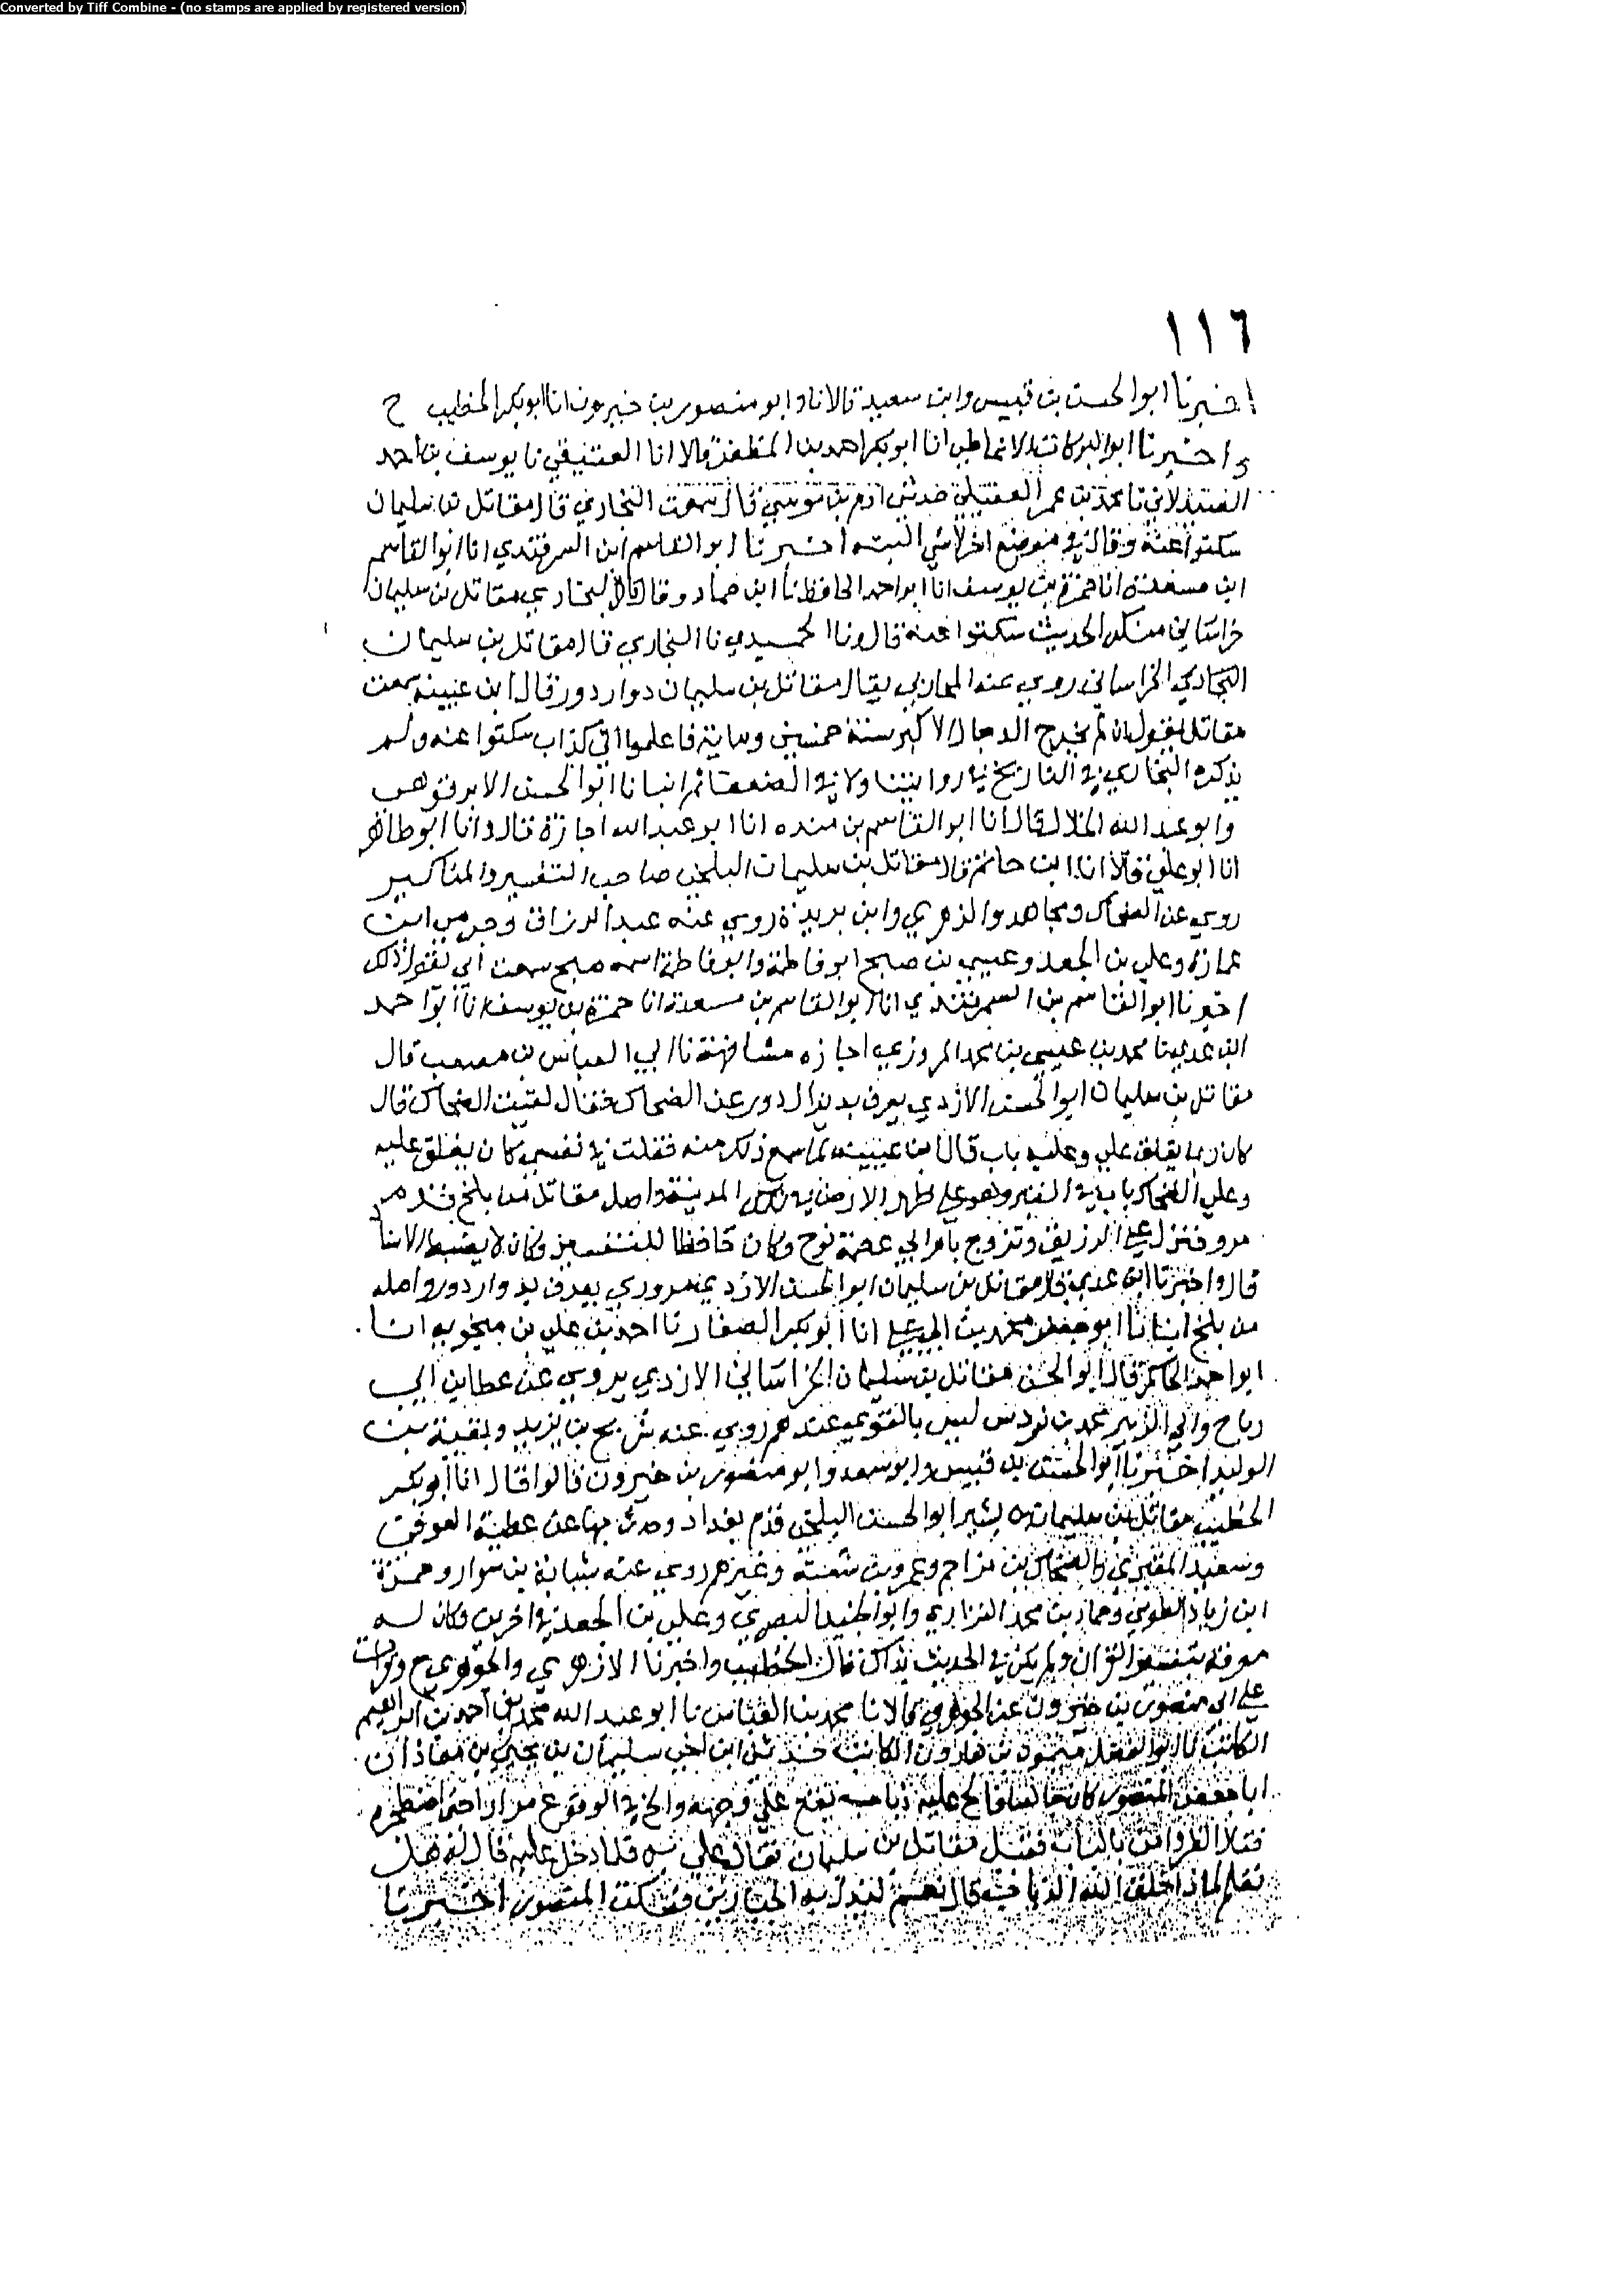 Converted by Tiff Combine - (no stamps are applied by registered version)
١١٦
اخبرنا ابوالحسن بن قبيس وابن سعيد قالا نا وابو منصور بن خيرون انا ابوبكر الخطيب ح
واخبرنا ابوالبركات الانماطي انا ابوبكر احمد بن المظفر قالا انا العتيقي نا يوسف بن احمد
الصيدلاني نا محمد بن عمر العقيلي حدثني ادم بن موسى قال سمعت البخاري قال مقاتل بن سليمان
سكتوا عنه وقال في موضع اخر لاشي البته اخبرنا ابوالقاسم ابن السمرقندي انا ابوالقاسم
ابن مسعدة انا حمزة بن يوسف انا ابواحمد الحافظ نا ابن حماد وقال قال البخاري مقاتل بن سليمان
خراساني منكر الحديث سكتوا عنه قال ونا الحميدي نا البخاري قال مقاتل بن سليمان
الخراساني روى عنه المحاربي يقال مقاتل بن سليمان دوار دوز قال ابن عيينه سمعت
مقاتل يقول ان لم يخرج الدجال الاكبر سنة خمسين ومايه فاعلموا اني كذاب سكتوا عنه ولم
يذكره البخاري في التاريخ في روايتنا ولا في الضعفا ثم انبانا ابوالحسن الابرقوهي
وابو عبد الله الخلال قالا انا ابوالقاسم بن منده انا ابوعبدالله اجازة قال وانا ابوطاهر
انا ابوعلي قالا انا ابن حاتم قال مقاتل بن سليمان البلخي صاحب التفسير والمناكير
روى عن الضحاك ومجاهد والزهري وابن بريدة روى عنه عبدالرزاق وحرمي ابن
عمارة وعلي بن الجعد وعيسى بن صبيح ابو فاطمة وابوفاطمة اسمه صبيح سمعت ابي يقول ذلك
اخبرنا ابوالقاسم بن السمرقندي انا ابوالقاسم بن مسعدة انا حمزة بن يوسف انا ابواحمد
ابن عدي نا محمد بن عيسى بن محمد المروزي اجازه مشافهة نا ابي العباس بن مصعب قال
مقاتل بن سليمان ابوالحسن الازدي يعرف الدور عن الضحاك فقال لقيت الضحاك قال
كان ربما يغلق علي وعليه باب قال ابن عيينه لما سمع ذلك منه فقلت في نفسي كان يغلق عليه
وعلى الضحاك باب في القبر وهو على ظهر الارض المدينة واصل مقاتل من بلخ قدم
مرو فنزل على الرزيق وتزوج بام ابي عصمة نوح وكان حافظا للتفسير وكان لا يضبط الاسناد
قال واخبرنا ابن عدي قال مقاتل بن سليمان ابوالحسن الازدي مروزي يعرف واصله
من بلخ انبانا ابوجعفر محمد بن ابي علي انا ابوبكر الصفار نا احمد بن علي بن منجويه انا
ابواحمد الحاكم قال ابوالحسن مقاتل بن سليمان الخراساني الازدي يروي عن عطا بن ابي
رباح وابي الزبير محمد بن تدرس ليس بالقوي عندهم روى عنه بن يزيد وبقية بن
الوليد اخبرنا ابوالحسن بن قبيس وابوسعد وابو منصور بن خيرون قالوا قال انا ابوبكر
الخطيب مقاتل بن سليمان بن بشير ابوالحسن البلخي قدم بغداد وحدث بها عن عطية العوفي
وسعيد المقبري والضحاك بن مزاحم وعمرو بن شعيب وغيرهم روى عنه شبابة بن سوار وحمزة
ابن زياد الطوسي وحماد بن محمد الفزاري وابوالجنيد الضرير وعلي بن الجعد في اخرين وكان له
معرفة بتفسير القران ولم يكن في الحديث بذاك قال الخطيب واخبرنا الازهري والجوهري ح وقرات
على ابي منصور بن خيرون عن الجوهري قالا نا محمد بن العباس نا ابو عبد الله محمد بن احمد بن ابراهيم
الكاتب نا ابوالفضل ميمون بن هارون الكاتب حدثني ابن اخي سليمان بن يحيى بن معاذ ان
اباجعفر المنصور كان جالسا فالح عليه ذباب يقع على وجهه والح في الوقوع مرارا حتى اضجره
فقال انظروا من بالباب فقيل مقاتل بن سليمان فقال علي به فلما دخل عليه قال له هل
تعلم لماذا خلق الله الذباب قال نعم ليذل به الجبارين فسكت المنصور اخبرنا